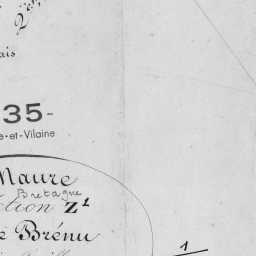 ais
35-
e-et-Vilaine
Maure
Bretagne
ction Z¹
e Brénu
1